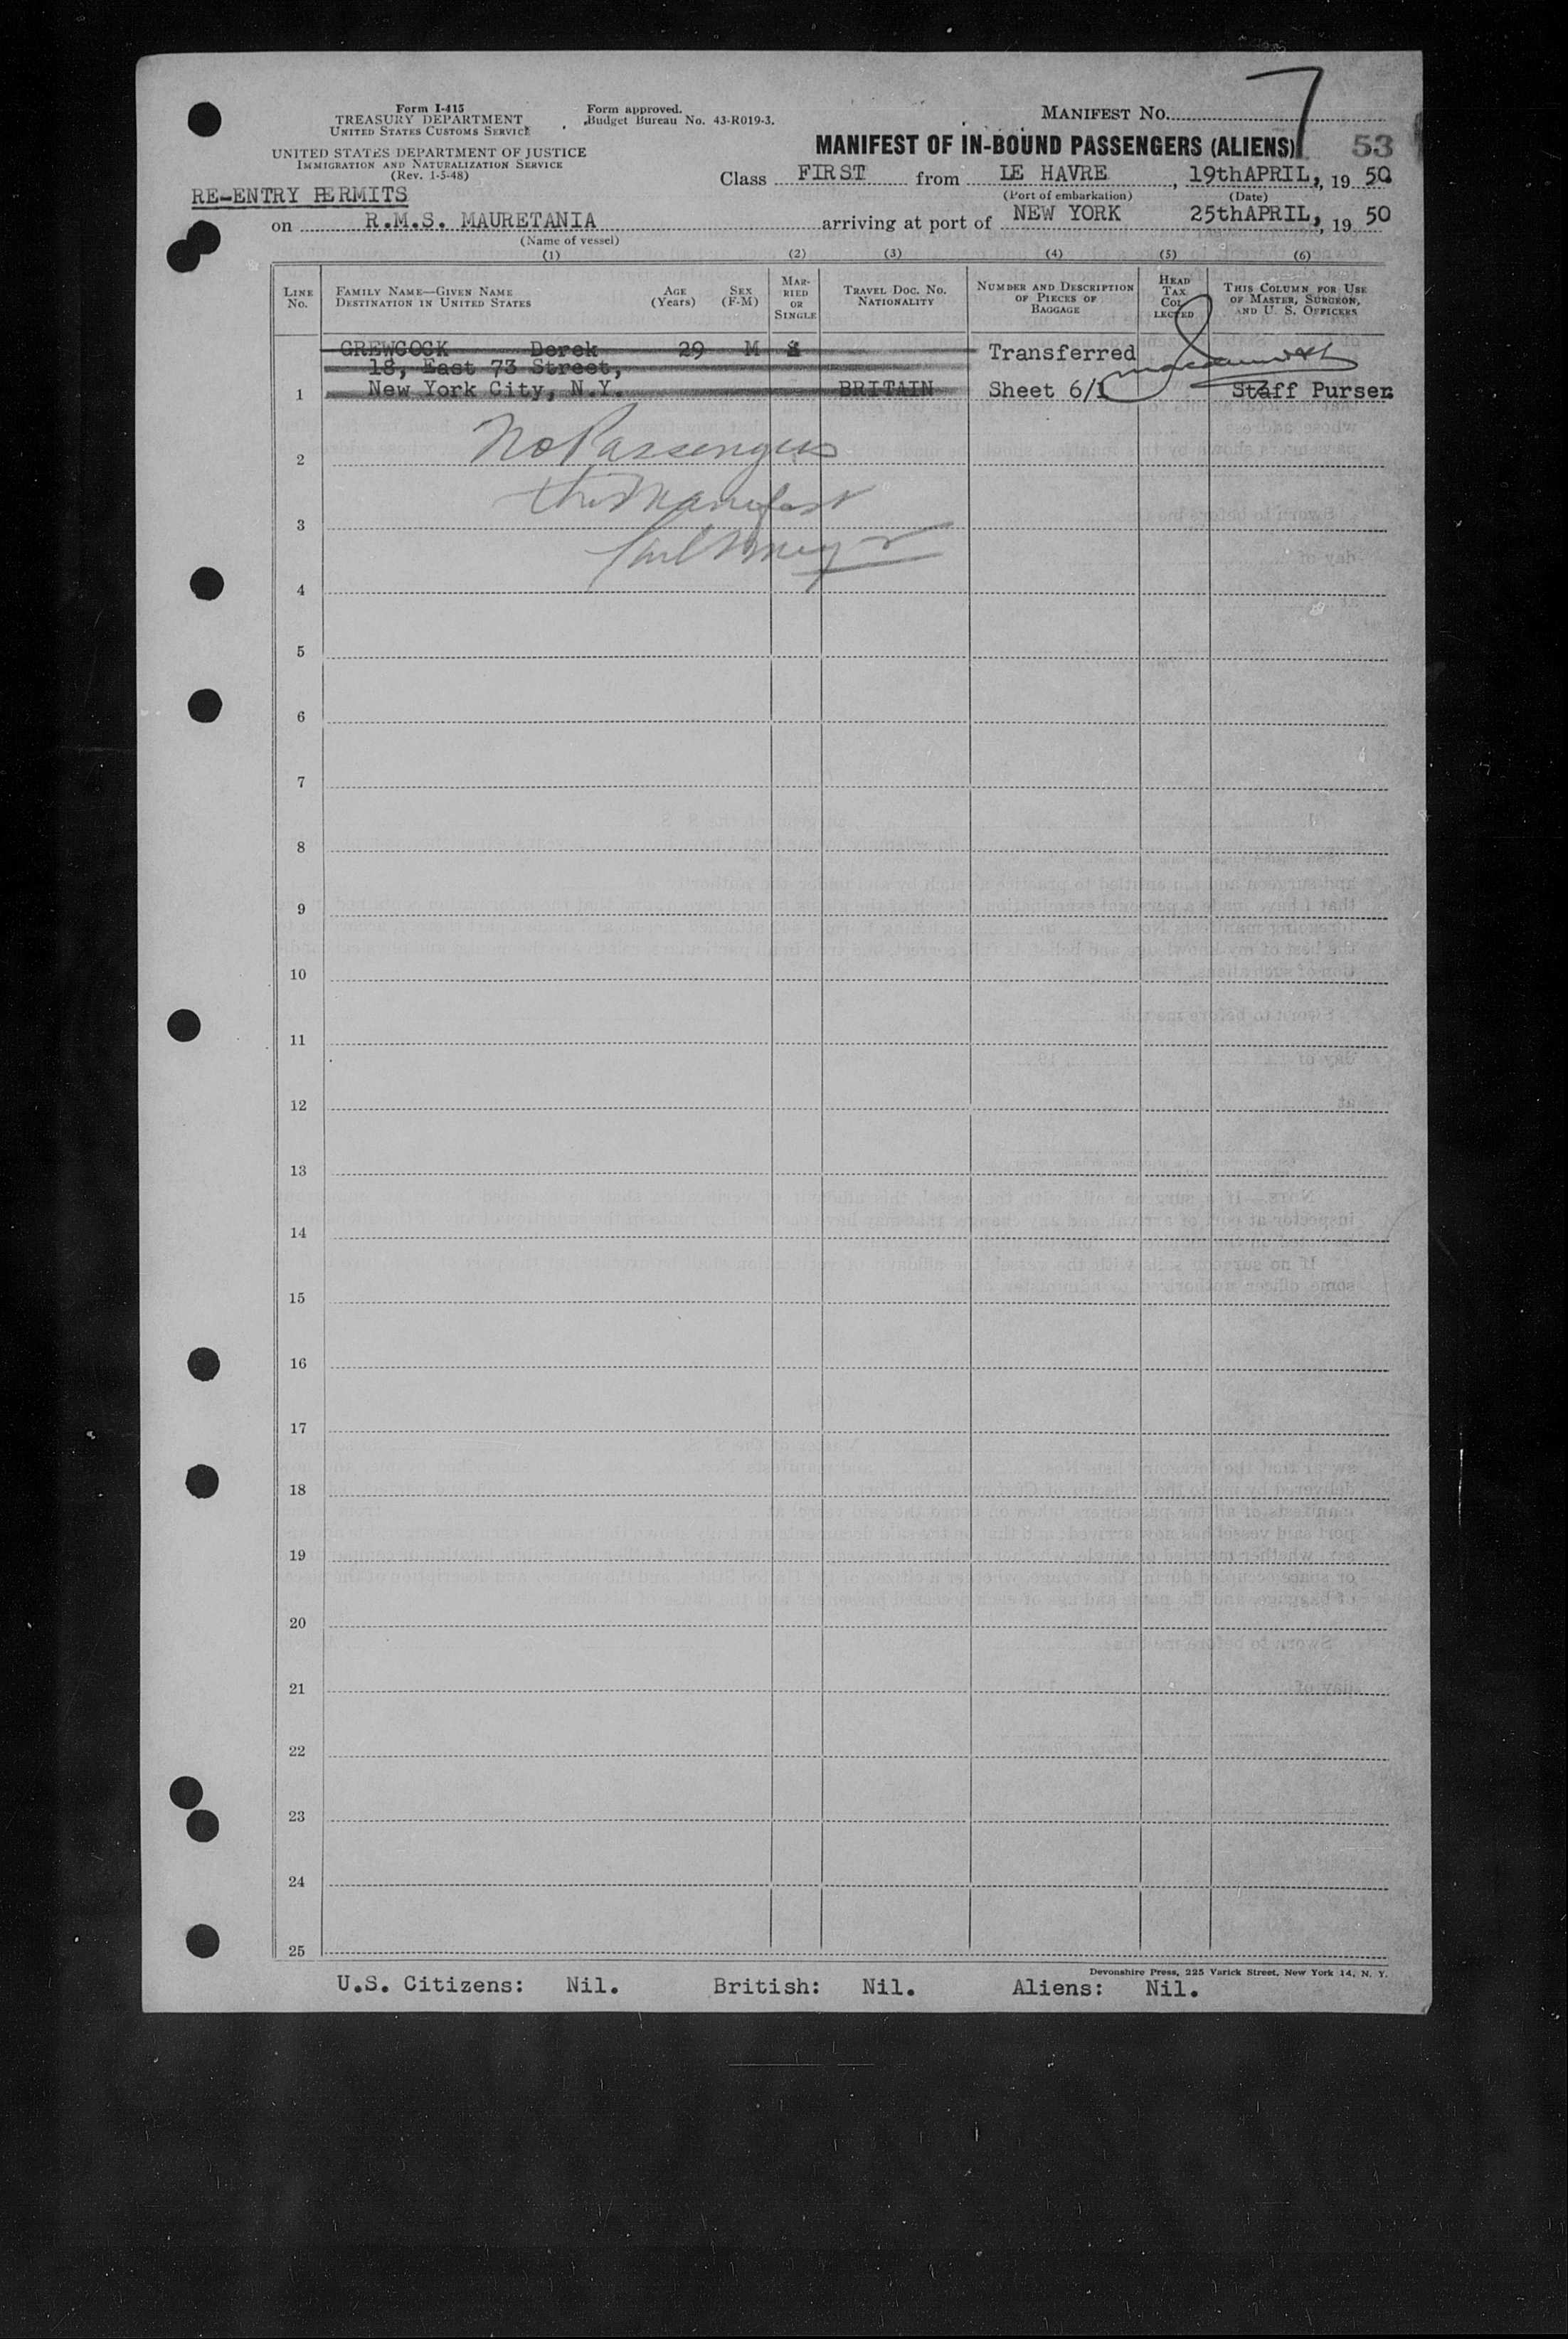 Form I-415
TREASURY DEPARTMENT
UNITED STATES CUSTOMS SERVICE
Form approved.
Budget Bureau No. 43-R019-3.
MANIFEST NO. 7
UNITED STATES DEPARTMENT OF JUSTICE
IMMIGRATION AND NATURALIZATION SERVICE
(Rev. 1-5-48)
MANIFEST OF IN-BOUND PASSENGERS (ALIENS) 53
Class FIRST from LE HAVRE, 19thAPRIL, 1950
(Port of embarkation) (Date)
RE-ENTRY PERMITS
on R.M.S. MAURETANIA arriving at port of NEW YORK 25thAPRIL, 1950
(Name of vessel)
(1) (2) (3) (4) (5) (6)
LINE NO. FAMILY NAME—GIVEN NAME DESTINATION IN UNITED STATES AGE (Years) SEX (F-M) MARRIED OR SINGLE TRAVEL DOC. NO. NATIONALITY NUMBER AND DESCRIPTION OF PIECES OF BAGGAGE HEAD TAX COLLECTED THIS COLUMN FOR USE OF MASTER, SURGEON, AND U. S. OFFICERS
GREWCOCK Derek 29 M S Transferred
18, East 73 Street,
1 New York City, N.Y. BRITAIN Sheet 6/1 Staff Purser.
2 No Passengers
3 this Manifest
4
5
6
7
8
9
10
11
12
13
14
15
16
17
18
19
20
21
22
23
24
25
Devonshire Press, 225 Varick Street, New York 14, N. Y.
U.S. Citizens: Nil. British: Nil. Aliens: Nil.